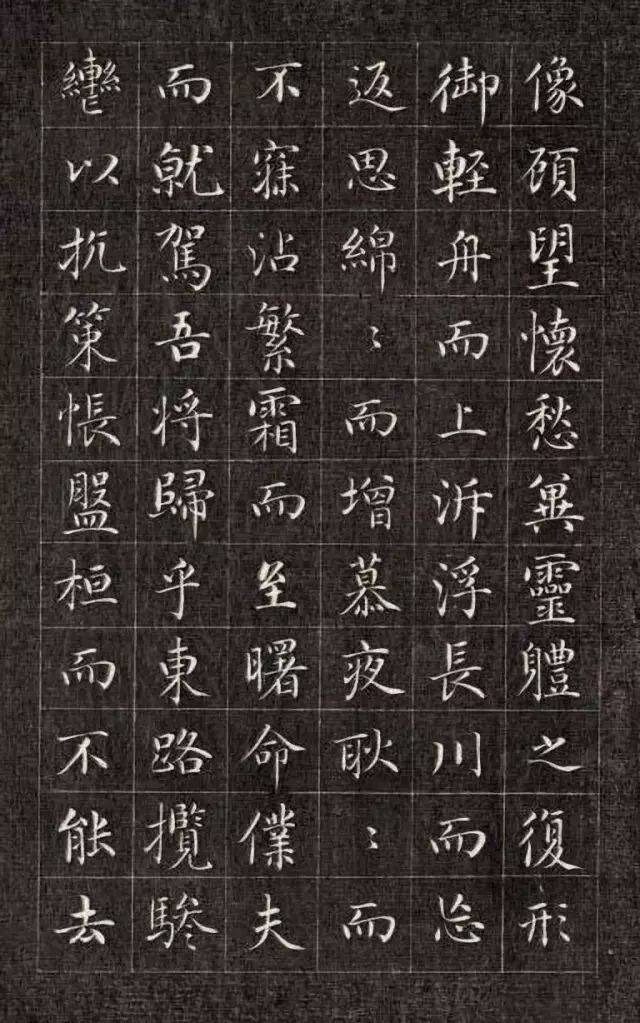 像頋望懷愁兾靈體之復形
御輕舟而上泝浮長川而忘
返思綿〻而增慕夜耿〻而
不寐沾繁霜而至曙命僕夫
而就駕吾将歸乎東路攬驂
轡以抗策悵盤桓而不能去